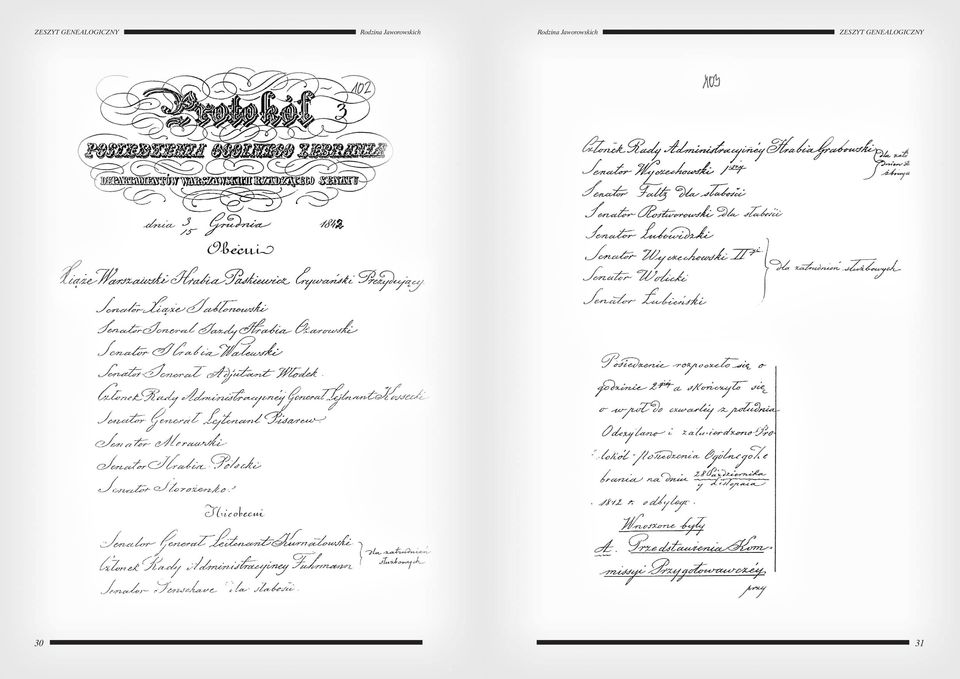 ZESZYT GENEALOGICZNY
Rodzina Jaworowskich
102
Protokół 3
POSIEDZENIA OGÓLNEGO ZEBRANIA
DEPARTAMENTÓW WARSZAWSKICH RZĄDZĄCEGO SENATU
dnia 3/15 Grudnia 1842
Obecni
Xiąże Warszawski Hrabia Paskiewicz Erywański Prezydujący
Senator Xiąże Jabłonowski
Senator Jenerał Jazdy Hrabia Ożarowski
Senator Hrabia Walewski
Senator Jenerał Adjutant Włodek.
Członek Rady Administracyjnéy Generał Lejtnant Kossecki
Senator Generał Lejtenant Pisarew
Senator Morawski
Senator Hrabia Potocki
Senator Storożenko.
Nieobecni
Senator Generał Leitenant Kurnatowski
Członek Rady Administracyjney Fuhrmann
dla zatrudnień
służbowych
Senator dla słabości.
30
Rodzina Jaworowskich
ZESZYT GENEALOGICZNY
103
Członek Rady Administracyjnéy Hrabia Grabowski
Senator Wyczechowski 1szy
dla zat
Senator Faltz dla słabości
Senator Rostworowski dla słabości
Senator Lubowidzki
Senator Wyczechowski II gi
Senator Wolicki
Senator Łubieński
dla zatrudnień służbowych
Posiedzenie rozpoczęto się o
godzinie 2giéy a skończyło się
o wpół do czwartéy z południa
Odczytano i zatwierdzono Pro-
tokół Posiedzenia Ogólnego Ze
brania na dniu 28 Października / 9 Listopada
1842 r. odbytego.
Wnoszone były
A. Przedstawienia Kom-
missyi Przygotowawczéy
przy
31